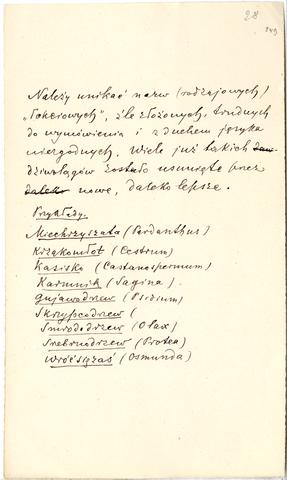 28
349
Należy unikać nazw (rodzajowych)
„Tokerowych", źle złożonych, trudnych
do wymówienia i z duchem języka
niezgodnych. Wiele już takich
dziwolągów zostało usunięte przez
nowe, daleko lepsze.
Przykłady.
(Pardanthus)
(Cestrum)
Kasisko (Castanospermum)
Karmnik (Sagina).
Gujawodrzew (Psidium)
Skrzypcodrzew (
Smrododrzew (Olax)
Srebrnodrzew (Protea)
(Osmunda)